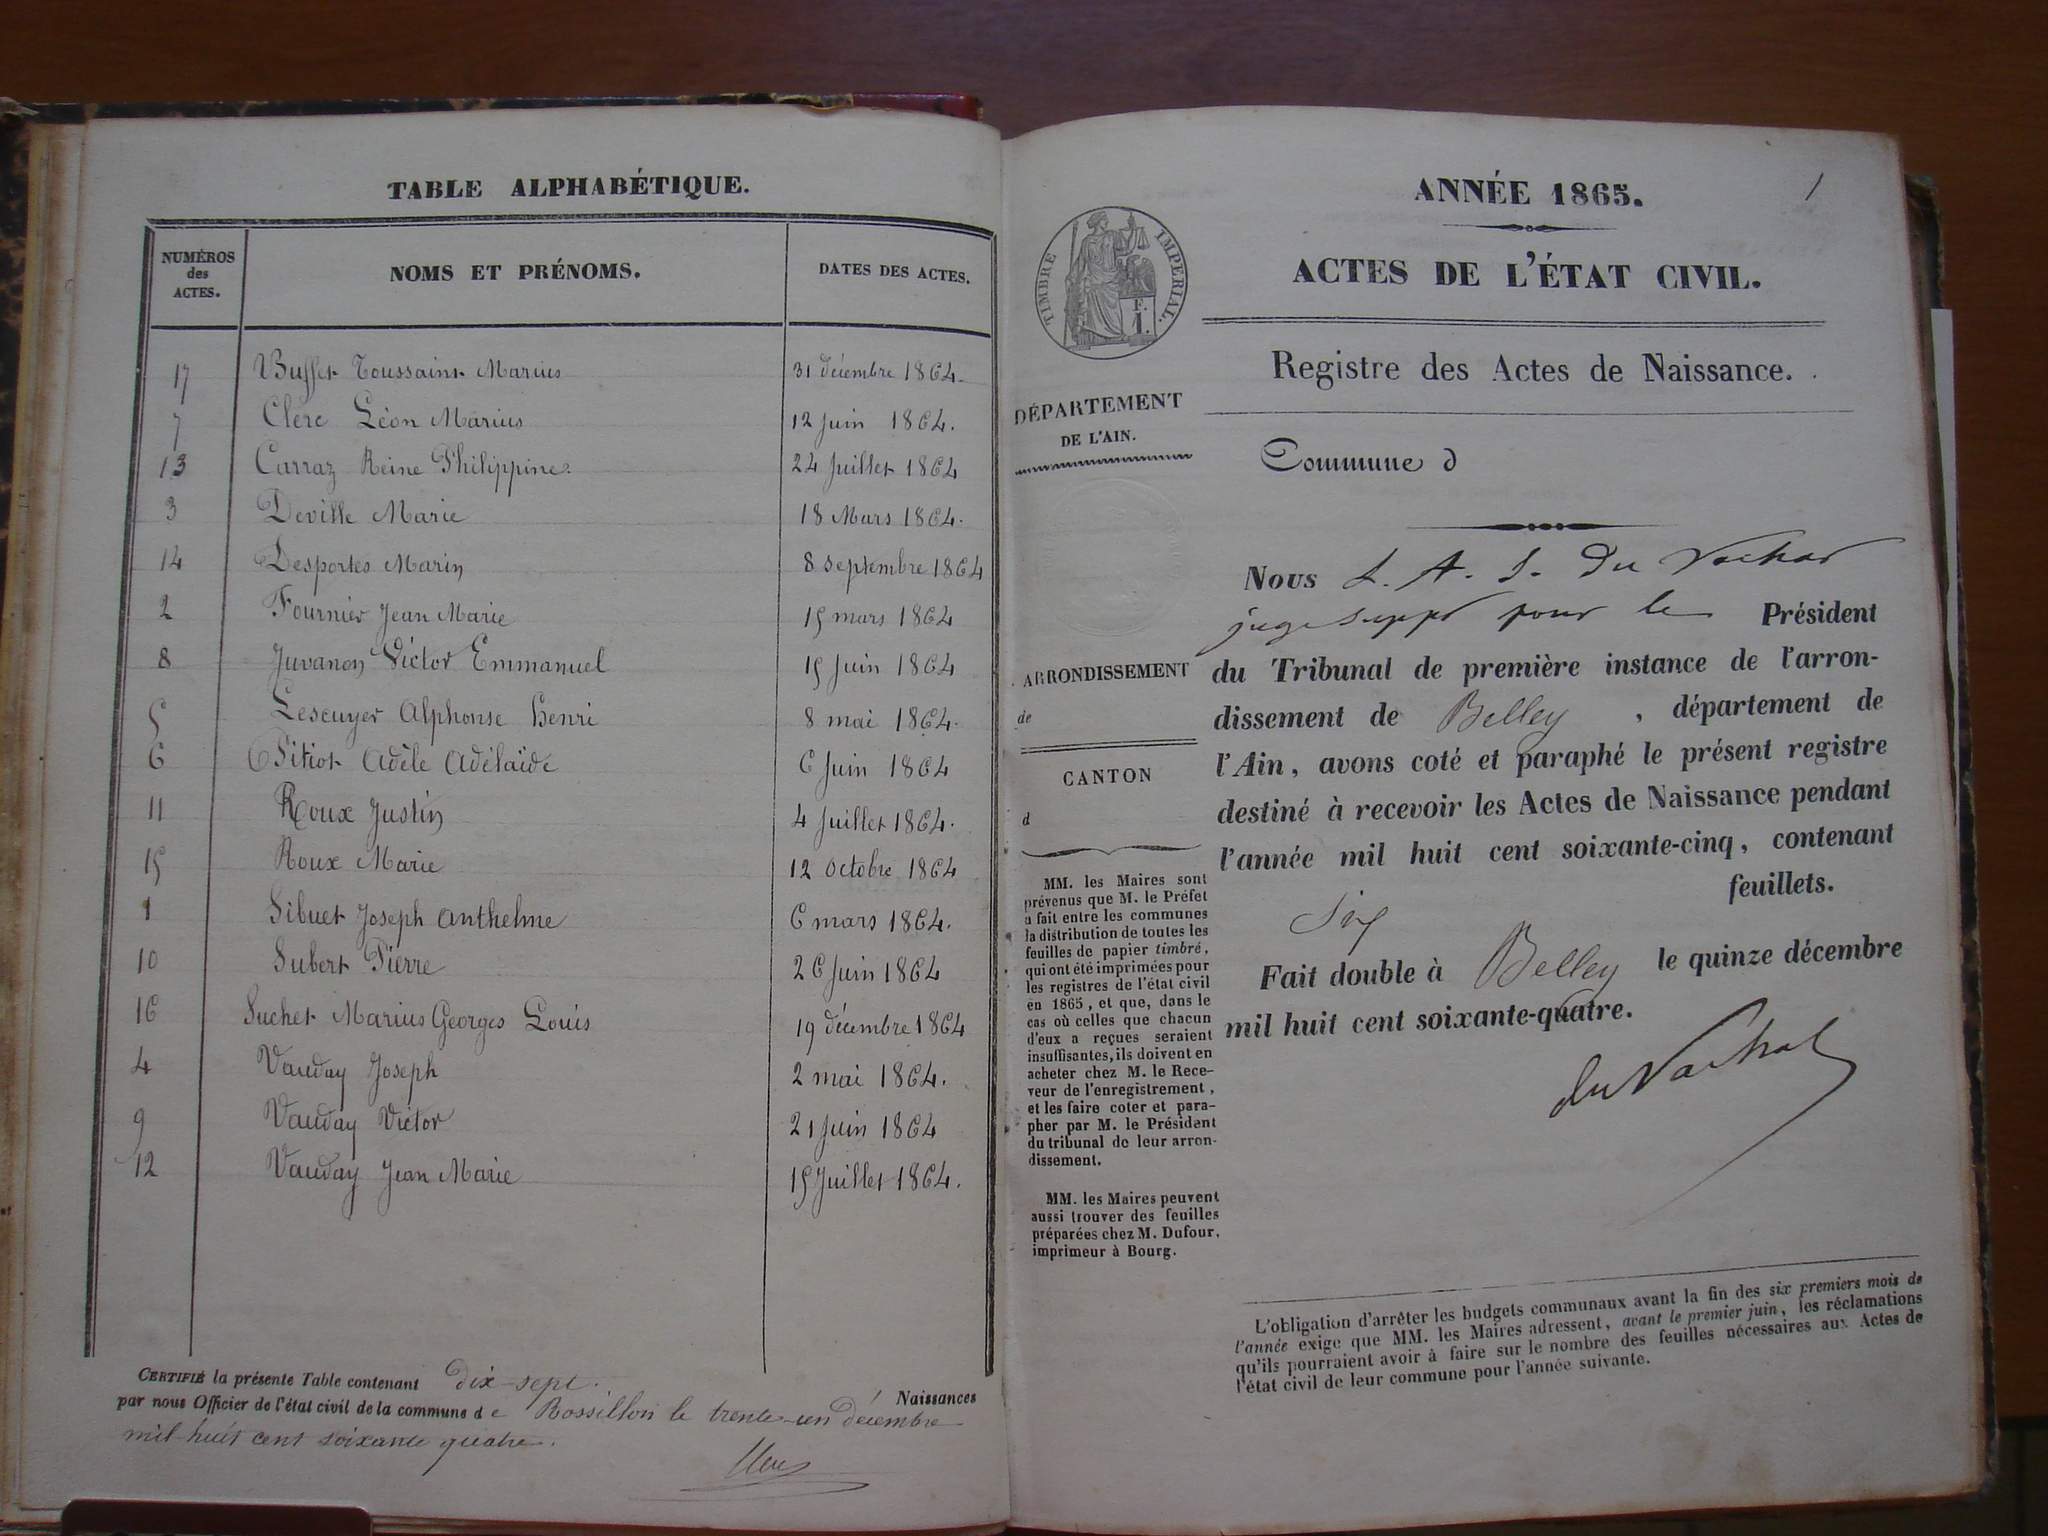 TABLE ALPHABÉTIQUE.
NUMÉROS des ACTES. NOMS ET PRÉNOMS. DATES DES ACTES.
17 Buffet Toussaint Marius 31 décembre 1864.
7 Clerc Léon Marius 12 Juin 1864.
13 Carraz Reine Philippine 24 Juillet 1864
3 Deville Marie 18 Mars 1864.
14 Desportes Marin 8 septembre 1864
2 Fournier Jean Marie 15 mars 1864
8 Juvanon Victor Emmanuel 15 Juin 1864
5 Lescuyer Alphonse Henri 8 mai 1864.
6 Pitiot Adèle Adélaïde 6 Juin 1864
11 Roux Justin 4 Juillet 1864.
15 Roux Marie 12 Octobre 1864
1 Sibuet Joseph Anthelme 6 mars 1864.
10 Subert Pierre 26 Juin 1864
16 Suchet Marius Georges Louis 19 décembre 1864
4 Vauday Joseph 2 mai 1864.
9 Vauday Victor 21 Juin 1864
12 Vauday Jean Marie 15 Juillet 1864.
CERTIFIÉ la présente Table contenant dix-sept Naissances
par nous Officier de l'état civil de la commune de Rossillon le trente-un décembre
mil huit cent soixante quatre.
1
ANNÉE 1865.
ACTES DE L'ÉTAT CIVIL.
Registre des Actes de Naissance.
TIMBRE IMPERIAL.
F.
1.
DÉPARTEMENT
DE L'AIN.
ARRONDISSEMENT
de
CANTON
d
MM. les Maires sont
prévenus que M. le Préfet
a fait entre les communes
la distribution de toutes les
feuilles de papier timbré,
qui ont été imprimées pour
les registres de l'état civil
en 1865, et que, dans le
cas où celles que chacun
d'eux a reçues seraient
insuffisantes, ils doivent en
acheter chez M. le Rece-
veur de l'enregistrement,
et les faire coter et para-
pher par M. le Président
du tribunal de leur arron-
dissement.
MM. les Maires peuvent
aussi trouver des feuilles
préparées chez M. Dufour,
imprimeur à Bourg.
Commune d
Nous L. A. J. Du Vachat
juge suppt pour le Président
du Tribunal de première instance de l'arron-
dissement de Belley, département de
l'Ain, avons coté et paraphé le présent registre
destiné à recevoir les Actes de Naissance pendant
l'année mil huit cent soixante-cinq, contenant
six feuillets.
Fait double à Belley le quinze décembre
mil huit cent soixante-quatre.
du Vachat
L'obligation d'arrêter les budgets communaux avant la fin des six premiers mois de
l'année exige que MM. les Maires adressent, avant le premier juin, les réclamations
qu'ils pourraient avoir à faire sur le nombre des feuilles nécessaires aux Actes de
l'état civil de leur commune pour l'année suivante.